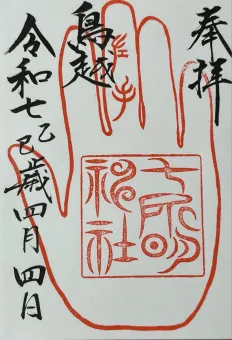 奉拝
鳥越
七所明
神社
令和七乙巳歳四月四日